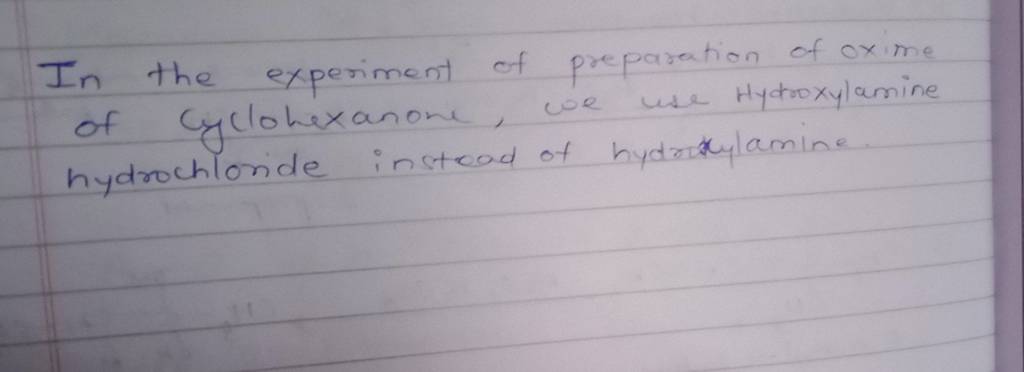 In the experiment of preparation of oxime
of Cyclohexanone, we use Hydroxylamine
hydrochloride instead of hydroxylamine.